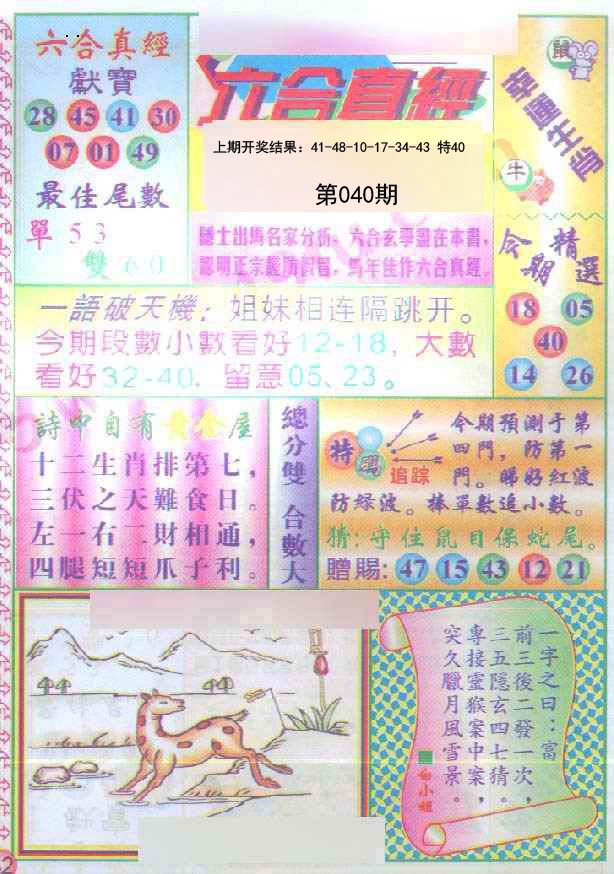 六合真經
獻寶
28 45 41 30
07 01 49
最佳尾數
單 53
雙 60
六合真經
上期开奖结果：41-48-10-17-34-43 特40
第040期
隱士出馬名家分析，六合玄學盡在本書，
聰明正宗嚴防假冒，馬年佳作六合真經。
鼠
幸運生肖
牛
今期
精選
18 05
40
14 26
一語破天機：姐妹相连隔跳开。
今期段數小數看好12-18，大數
看好32-40．留意05、23。
詩中自有黃金屋
十二生肖排第七，
三伏之天難食日。
左一右二財相通，
四腿短短爪子利。
總分雙 合數大
特碼
追踪
今期預測于第
四門，防第一
門。睇好红波
防緑波。棒單數追小數。
猜：守住鼠目保蛇尾。
贈賜：47 15 43 12 21
一字之曰：富
前三後二發一次，
三五隱玄四七猜。
專接靈猴案中案，
突久臘月風雪景。
白小姐
2